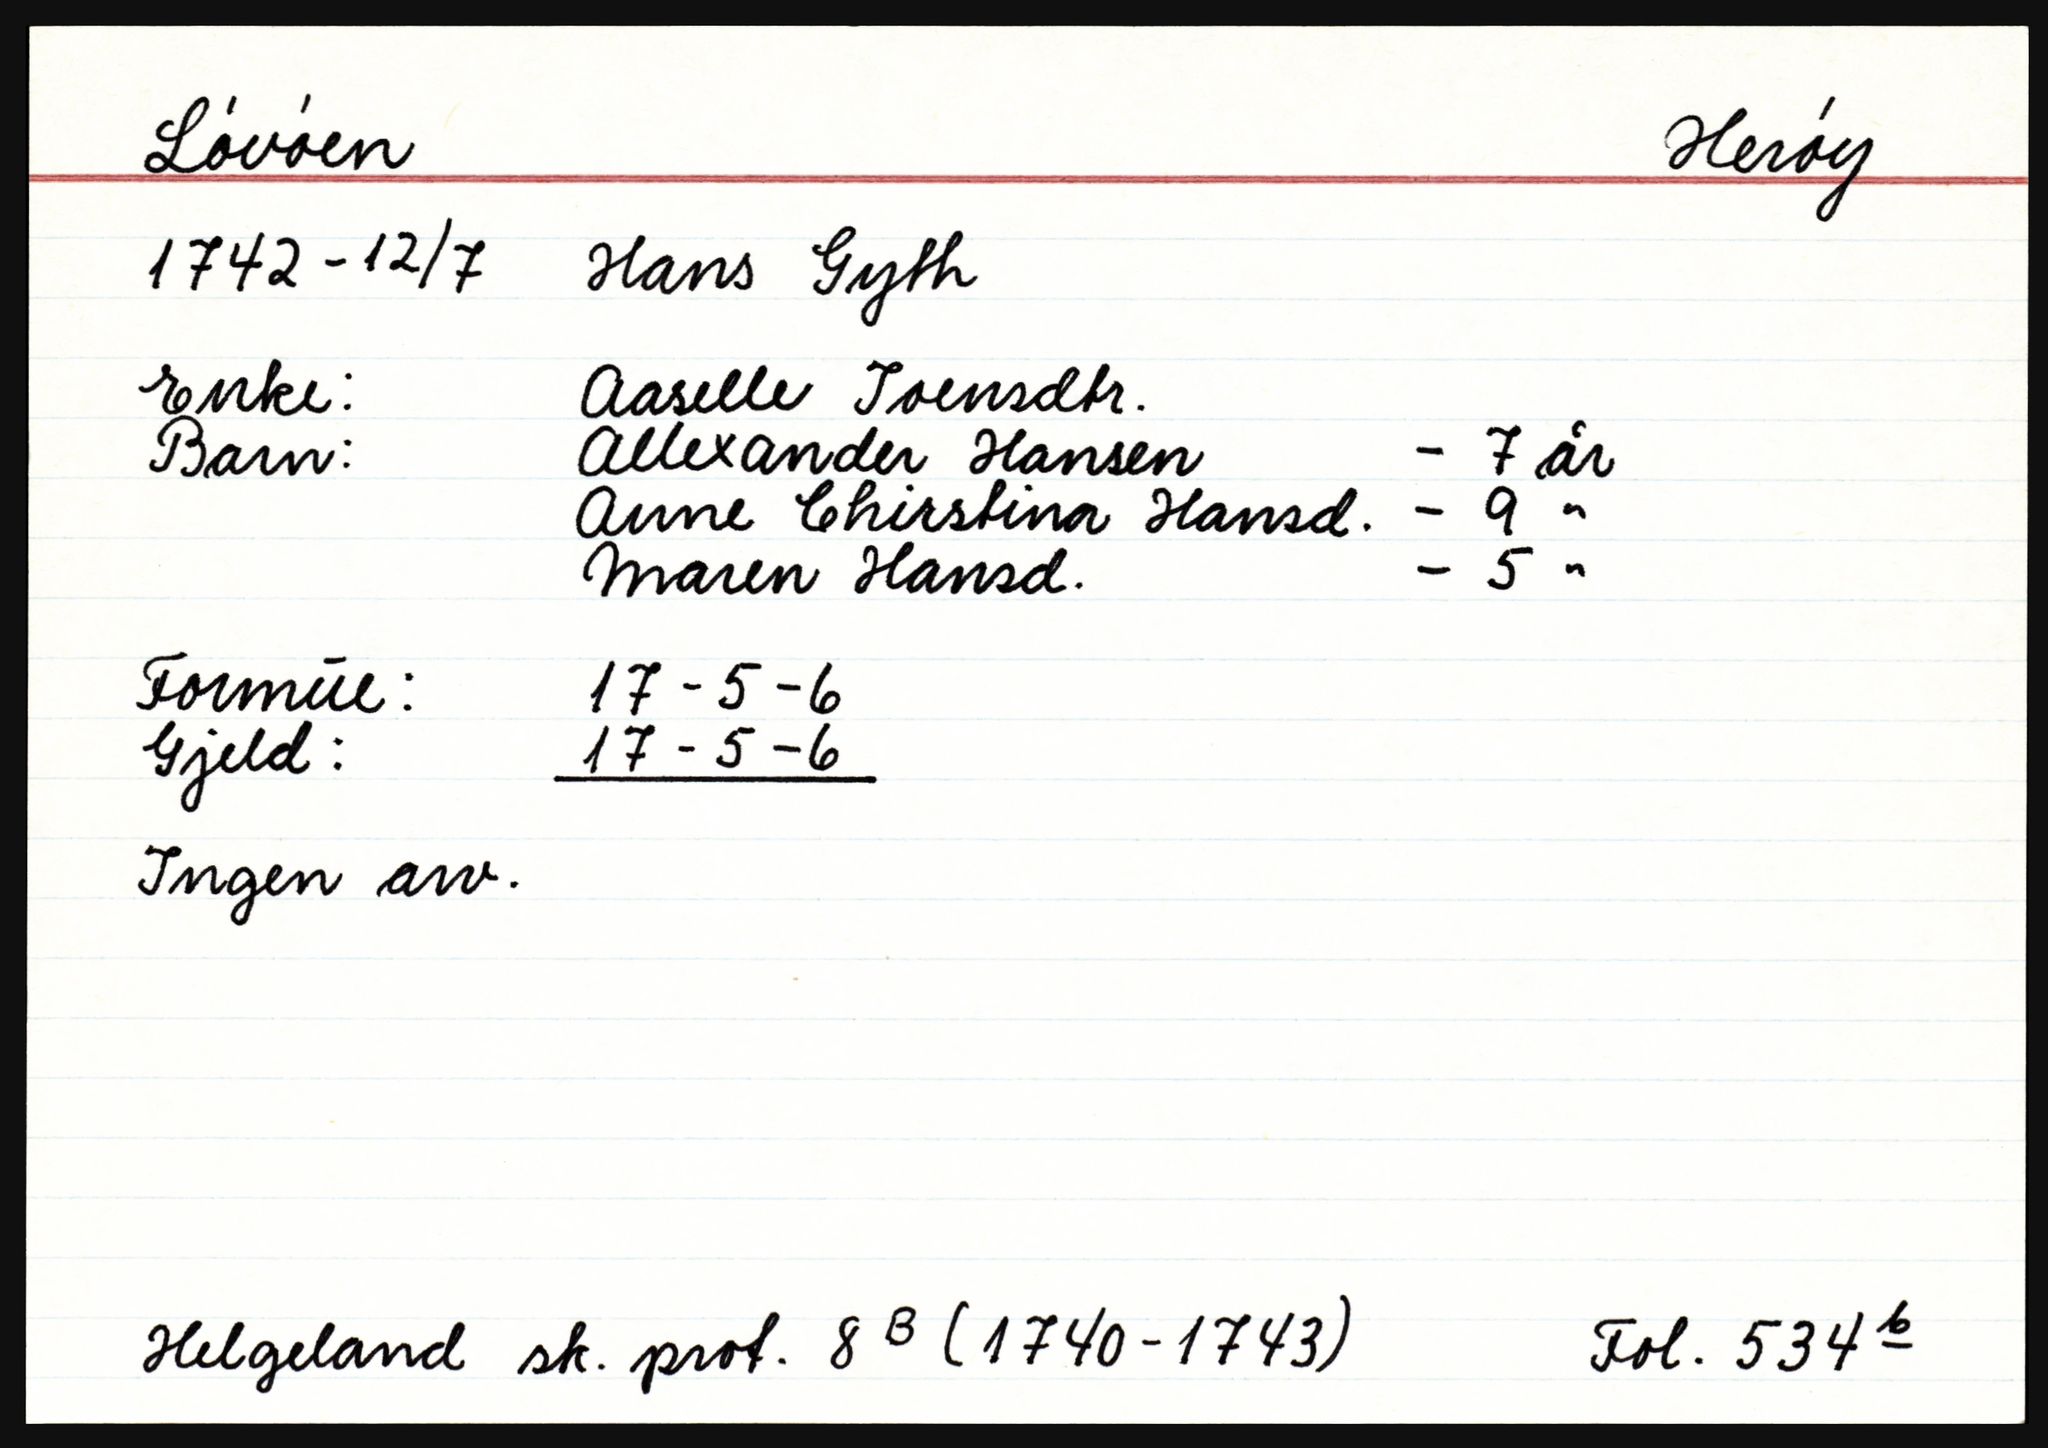 Lóvóen Heróy
1742 - 12/7 Hans Gyth
Enke: Aaselle Ivensdtr.
Barn: Allexander Hansen - 7 år
Anne Chirstina Hansd. - 9 "
Maren Hansd. - 5 "
Formūe: 17 - 5 - 6
Gjeld: 17 - 5 - 6
Ingen arv.
Helgeland sk. prot. 8 B (1740 - 1743) Fol. 534 b